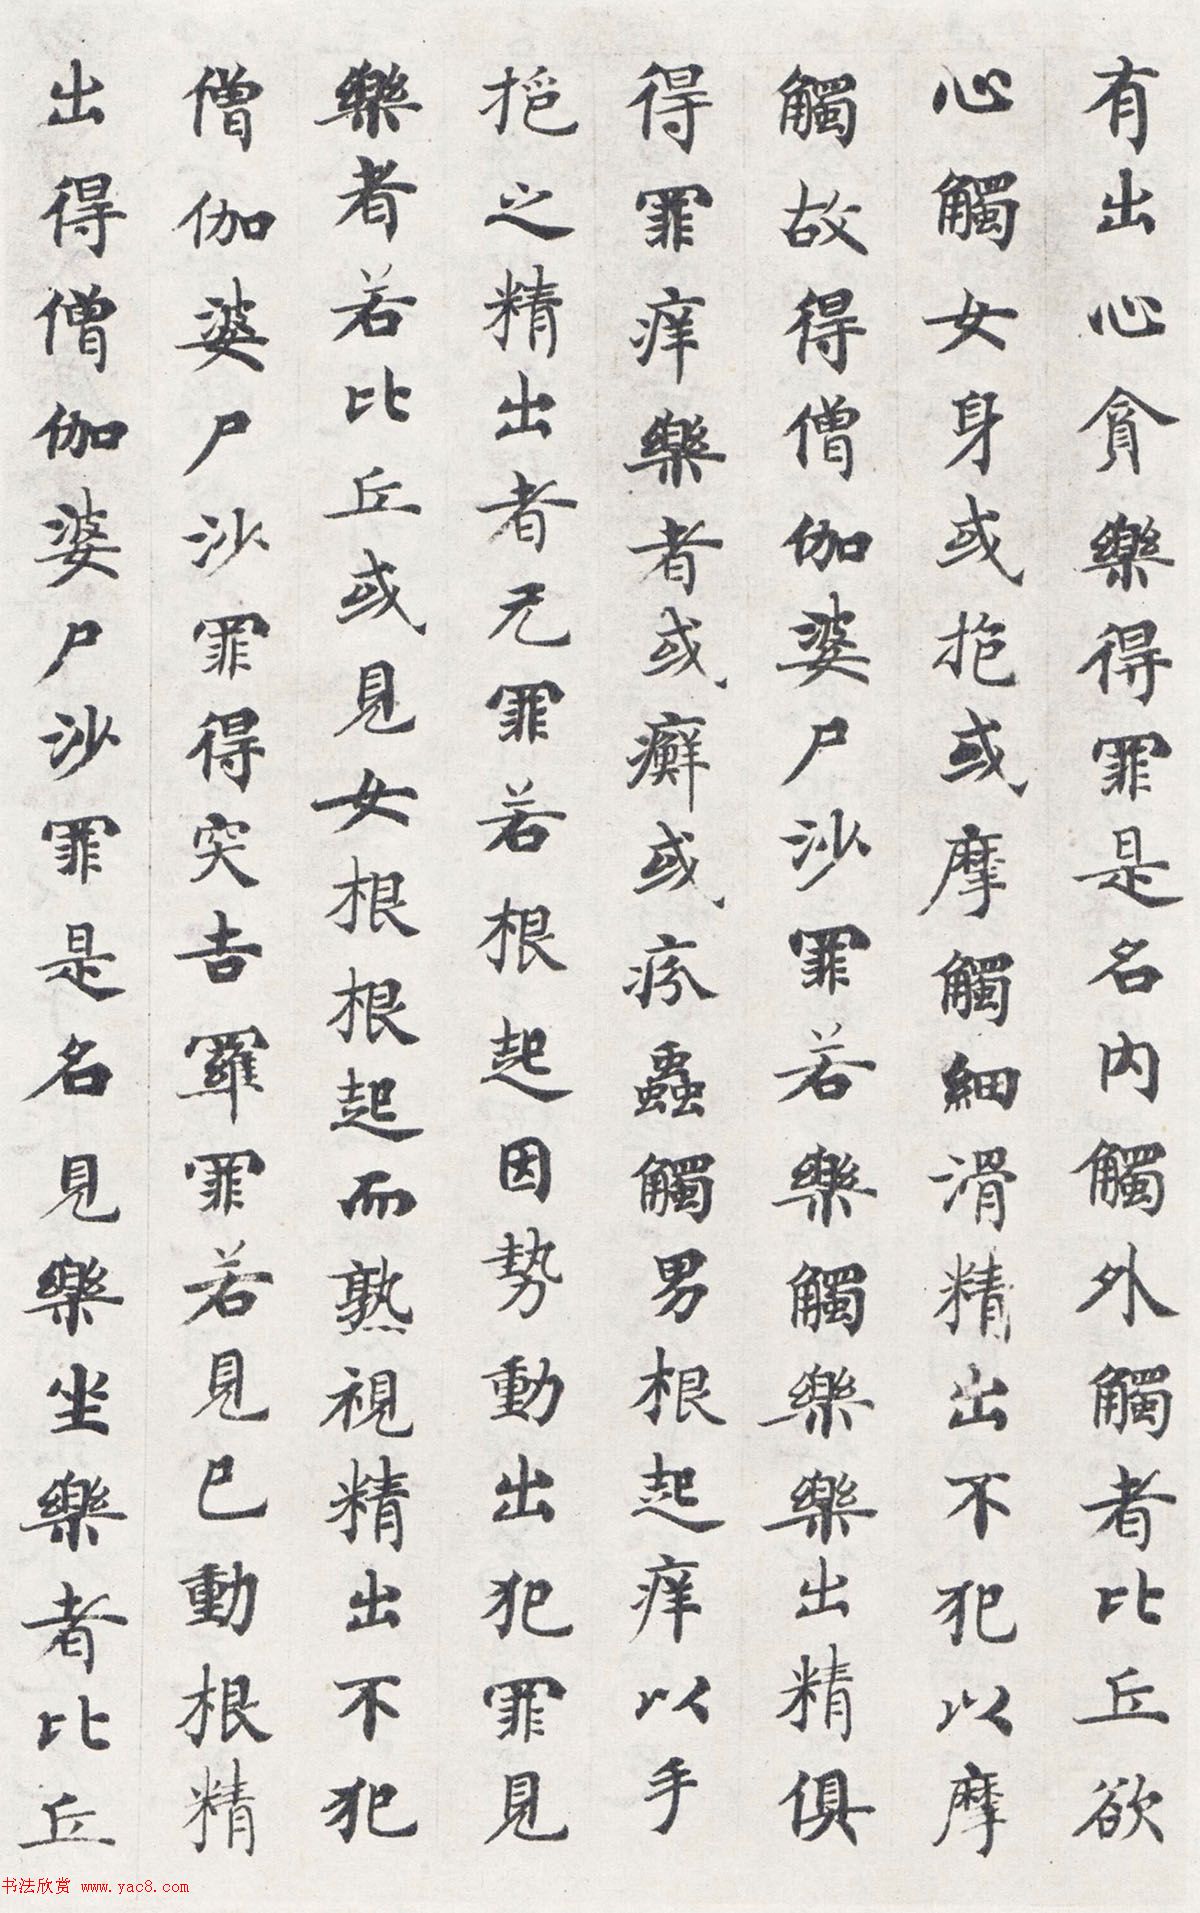 有出心貪樂得罪是名內觸外觸者比丘欲
心觸女身或抱或摩觸細滑精出不犯以摩
觸故得僧伽婆尸沙罪若樂觸樂樂出精俱
得罪痒樂者或癬或疥蟲觸男根起痒以手
挹之精出者无罪若根起因勢動出犯罪見
樂者若比丘或見女根根起而熟視精出不犯
僧伽婆尸沙罪得突吉羅罪若見已動根精
出得僧伽婆尸沙罪是名見樂坐樂者比丘
书法欣赏 www.yac8.com